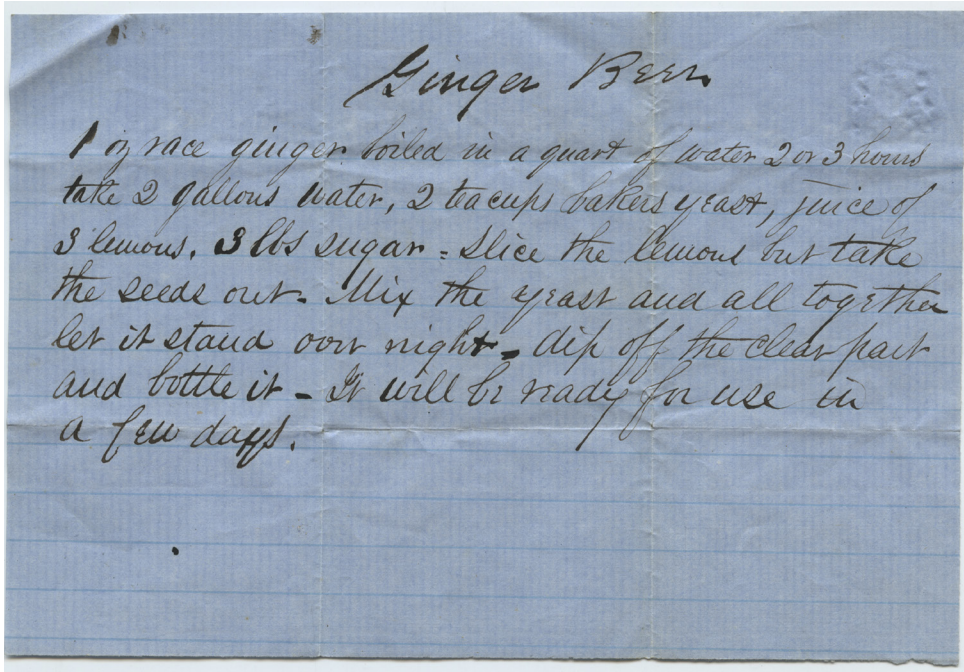 Ginger Beer
1 oz race ginger boiled in a quart of water 2 or 3 hours
take 2 gallons water, 2 teacups bakers yeast, juice of
3 lemons. 3 lbs sugar - Slice the lemons but take
the seeds out - Mix the yeast and all together
let it stand over night - dip off the clear part
and bottle it - It will be ready for use in
a few days.